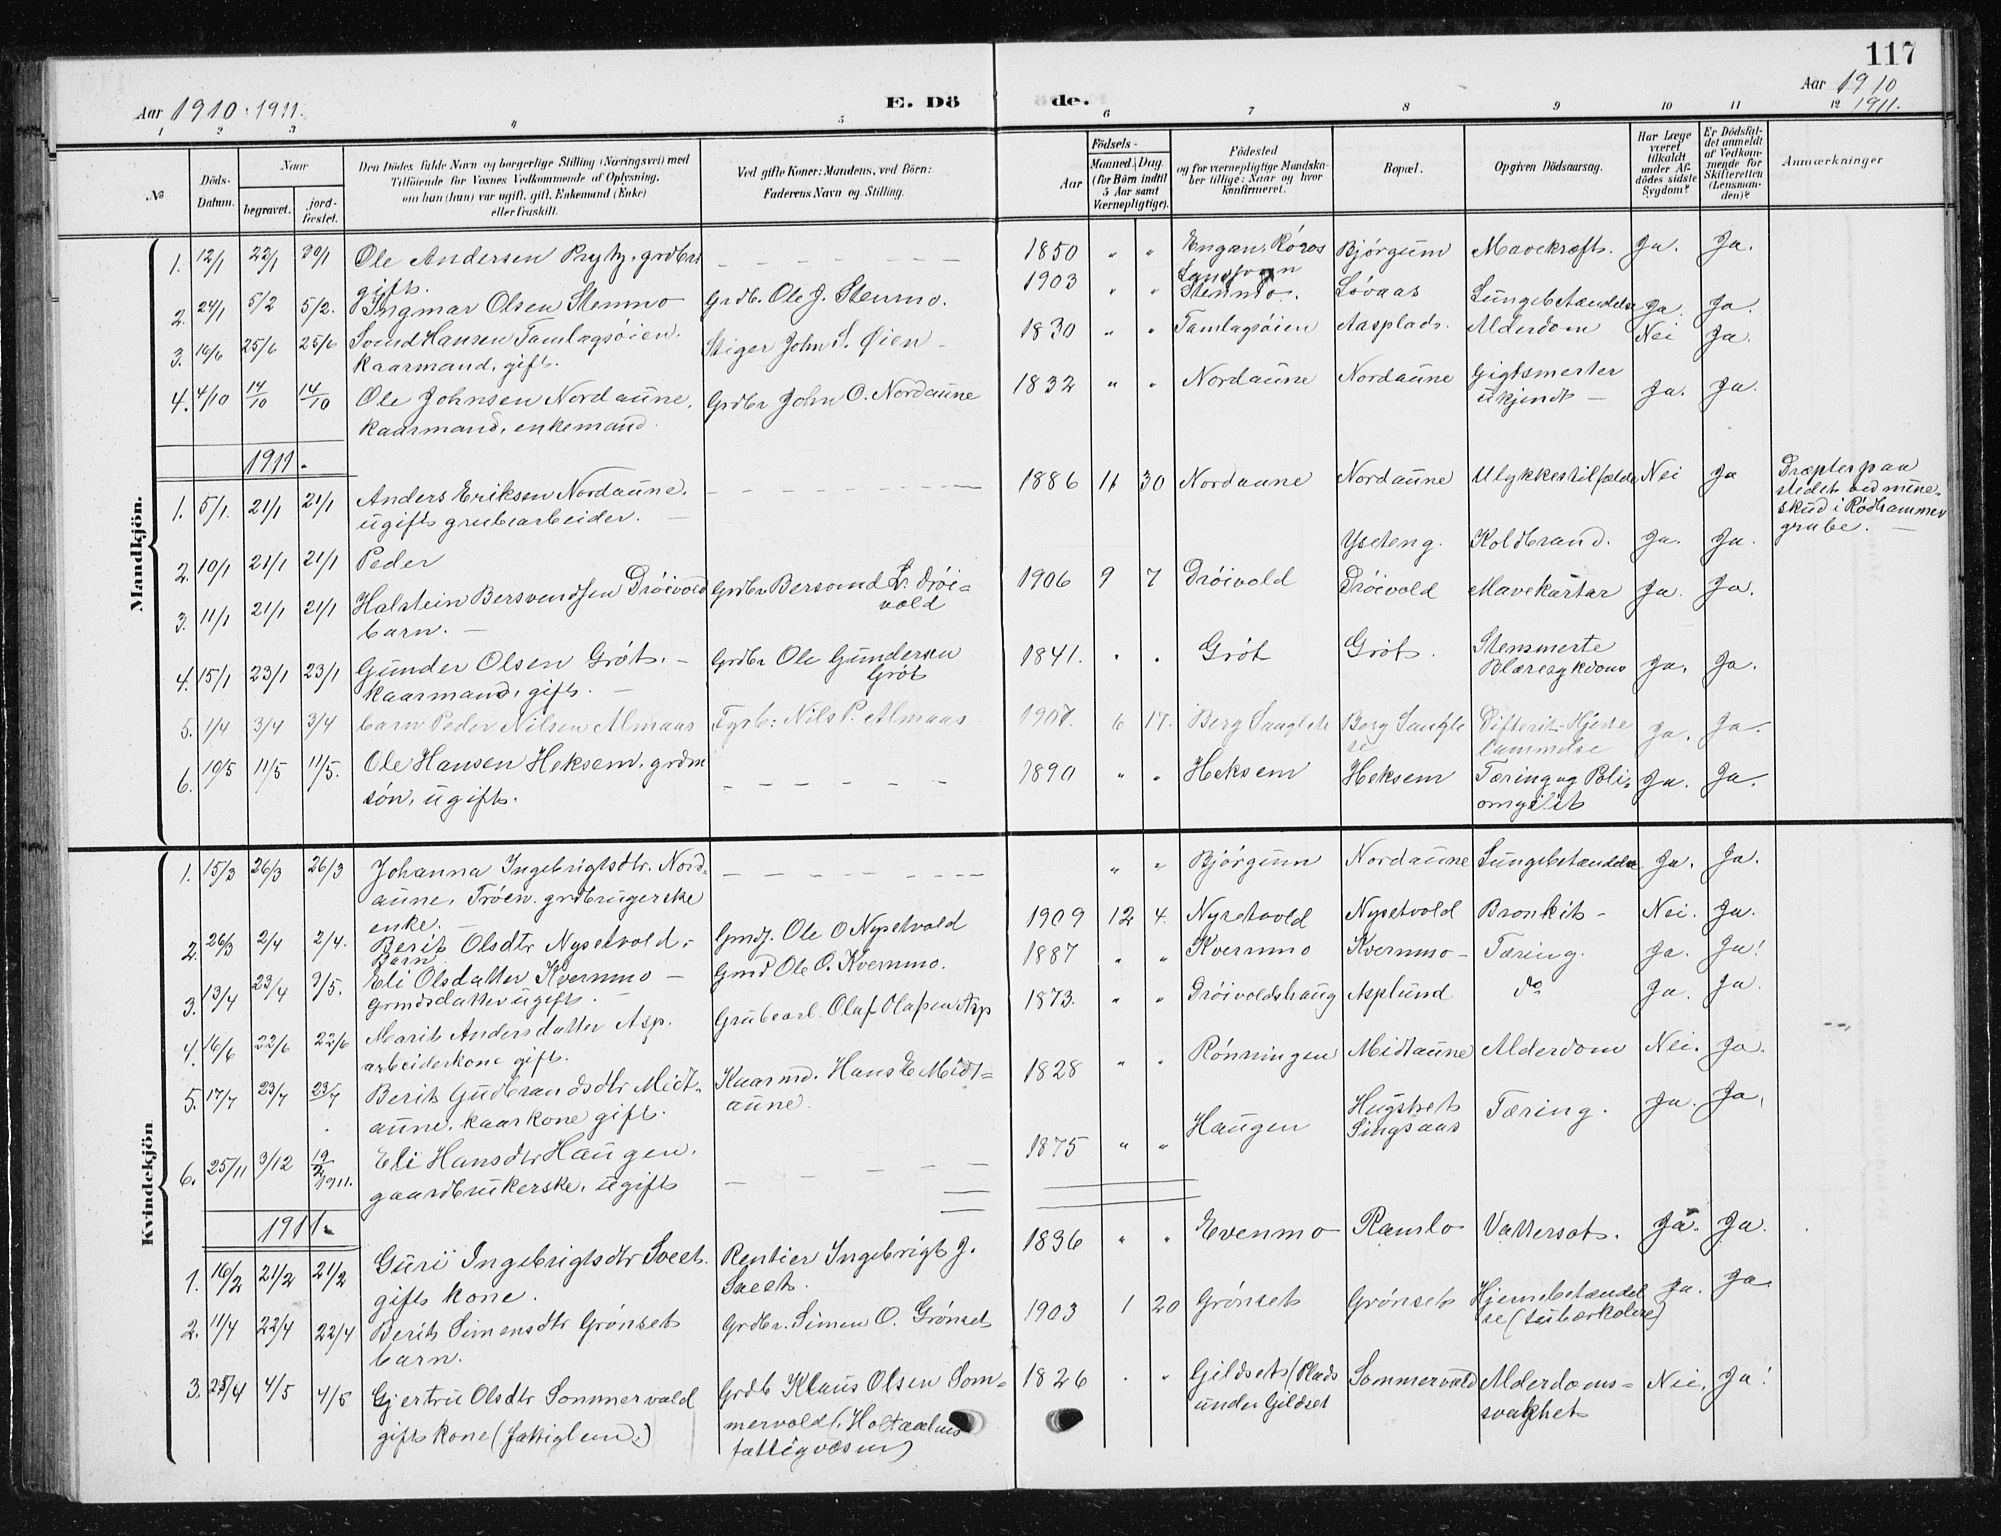 117
Aar 1910-1911.
E. Dö
de.
Aar 1910
1911.
1 2 3 4 5 6 7 8 9 10 11 12
No
Döds-
Datum.
Naar
begravet.
jord-
fæstet.
Den Dödes fulde Navn og borgerlige Stilling (Næringsvei) med
Tilföiende for Voxnes Vedkommende af Oplysning,
om han (hun) var ugift, gift, Enkemand (Enke)
eller fraskilt.
Ved gifte Koner: Mandens, ved Börn:
Faderens Navn og Stilling.
Födsels-
Aar
Maaned. Dag.
(for Börn indtil
5 Aar samt
Værnepligtige).
Födested
og for værnepligtige Mandska-
ber tillige: Naar og hvor
konfirmeret.
Bopæl.
Opgiven Dödsaarsag.
Har Læge
været
tilkaldt
under Af-
dödes sidste
Sygdom?
Er Dödsfal-
det anmeldt
af Vedkom-
mende for
Skifteretten
(Lensman-
den)?
Anmærkninger
Mandkjön.
1. 12/1 22/1 30/1 Ole Andersen Prytz, grdbr. 1850 " " Engan, Röros Bjørgum Mavekræft. Ja. Ja.
gift.
2. 24/1 5/2 5/2. Ingmar Olsen Stenmo Grdb. Ole J. Stenmo. 1903 " " Stenmo. Løvaas Lungebetændelse Ja. Ja.
3. 16/6 25/6 25/6 Svend Hansen Tamlagsøien. Stiger John S. Øien - 1830 " " Tamlagsøien Aasplads. Alderdom Nei Ja.
kaarmand, gift.
4. 4/10 14/10 14/10 Ole Johnsen Nordaune, Grdbr John O. Nordaune 1832 " " Nordaune Nordaune Gigtsmerter Ja. Ja.
kaarmand, enkemand. ukjendt -
1911.
1. 5/1. 21/1 21/1 Anders Eriksen Nordaune, 1886 11 30 Nordaune Nordaune Ulykkestilfælde Nei Ja Dræptes paa
ugift grubearbeider. stedet ved mine-
skud i Rødhammer
grube. -
2. 10/1 21/1 21/1 Peder Yseteng. Koldbrand. Ja. Ja.
3. 11/1 21/1 21/1 Halstein Bersvendsen Drøivold Grdbr. Bersvend L. Drøi- 1906 9 7 Drøivold Drøivold Mavekatar Ja. Ja.
barn. - vold
4. 15/1 23/1 23/1 Gunder Olsen Grøt. - Grdbr Ole Gundersen 1841. " " Grøt Grøt. Stensmerte Ja. Ja.
kaarmand, gift. - Grøt Blæresykdom
5. 1/4 3/4 3/4 barn Peder Nilsen Almaas Fyrb: Nils P. Almaas 1907. 6 17. Berg Singsaas Difterit-Hjerte Ja. Ja.
lammelse
6. 10/5 11/5 11/5. Ole Hansen Heksem, grdm 1890 " " Heksem Heksem Tæring og Poli- Ja. Ja.
søn, ugift.
Kvindekjön
1. 15/3 26/3 26/3 Johanna Ingebrigtsdtr. Nord- " " Bjørgum Nordaune Lungebetændelse Ja. Ja.
aune, Trøen. grdbrugerske
enke. -
2. 26/3 2/4 2/4. Berit Olsdtr Nysetvold, Gmdj. Ole O Nysetvold 1909 12 4. Nysetvold Nysetvold Bronkit - Nei. Ja.
Barn
3. 13/4 23/4 3/5. Eli Olsdatter Kvernmo - Gmd Ole O. Kvernmo. 1887 " " Kvernmo Kvernmo - Tæring. Ja. Ja!
grmdsdatter ugift. -
4. 16/6 22/6 22/6 Marit Andersdatter Asp. Grubearb. Olaf Olafsen Asp 1873. " " Drøivoldshaug Asplund do Ja. Ja.
arbeiderkone gift.
5. 17/7 23/7 23/7 Berit Gudbrandsdtr Midt- Kaarmd. Hans E Midt- 1828 " " Rønningen Midtaune Alderdom Nei. Ja.
aune, kaarkone gift. aune.
6. 25/11 3/12 19/2 1911. Eli Hansdtr Haugen. 1875 " " Haugen Hugstset Tæring. Ja. Ja.
gaardbrukerske, ugift Singsaas
1911.
1. 16/2 21/2 21/2 Guri Ingebrigtsdtr Sveet. Rentier Ingebrigt J. 1836 " " Evenmo Ramlo Vattersot. Ja. Ja.
gift kone. Sveet.
2. 11/4 22/4 22/4 Berit Simensdtr Grønset Grdbr. Simen O. Grønset 1903 1 20 Grønset Grønset Hjernebetændel Ja. Ja.
barn. se (tuberkolese)
3. 25/4 4/5 4/5 Gjertru Olsdtr Sommervold Grdb Klaus Olsen Som- 1826 " " Gildset (Plads Sommervold Alderdoms- Nei, Ja!
gift kone (fattiglem.) mervold (. Holtaalens under Gildset svakhet
fattigvæsen)